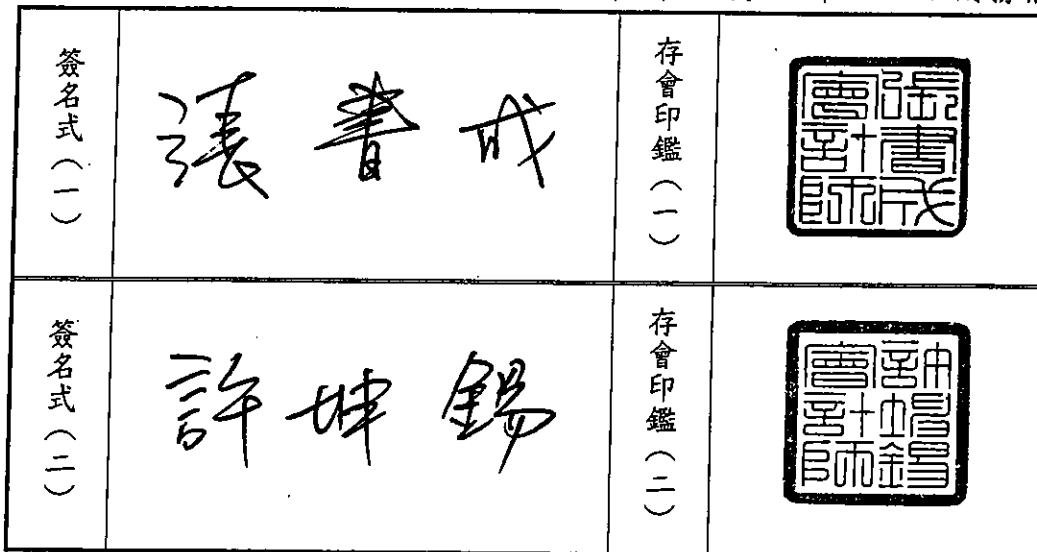 簽名式(一)
張書成
存會印鑑(一)
張書成會計師
簽名式(二)
許坤錫
存會印鑑(二)
許坤錫會計師